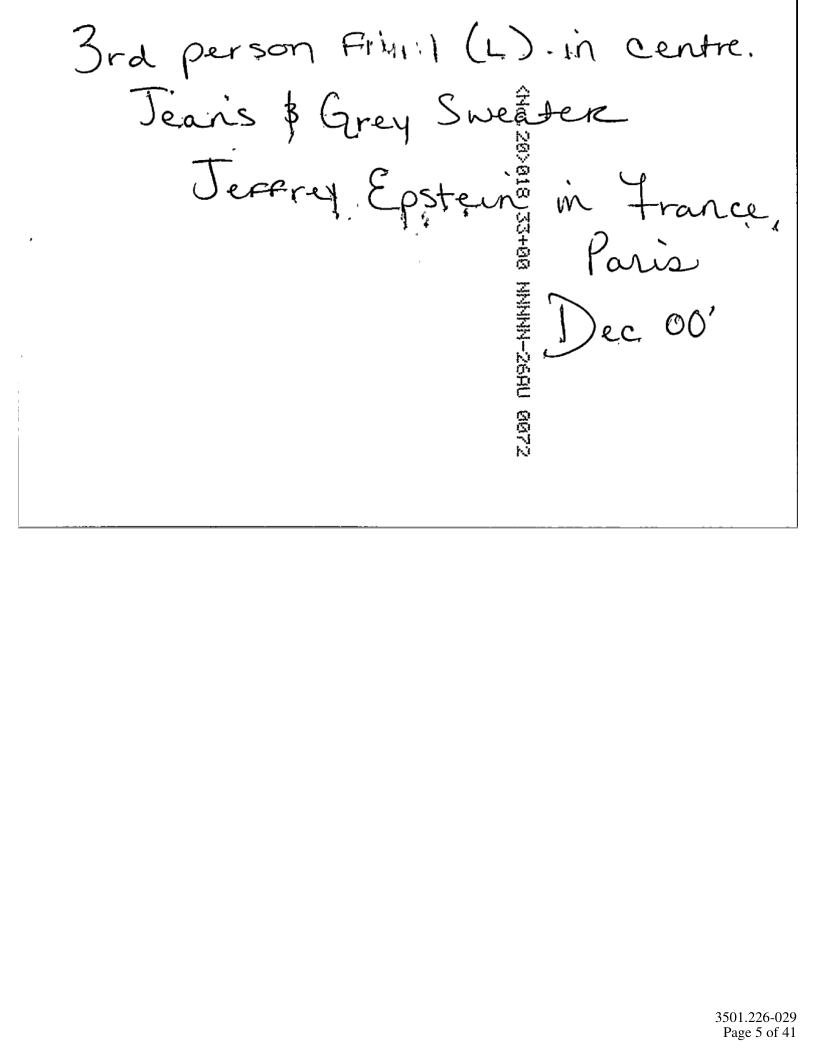 3rd person (L) in centre.
Jean's & Grey Sweater
Jeffrey Epstein in France,
Paris
Dec 00'
20>018 33+00 NNNNN-26AU 0072
3501.226-029
Page 5 of 41